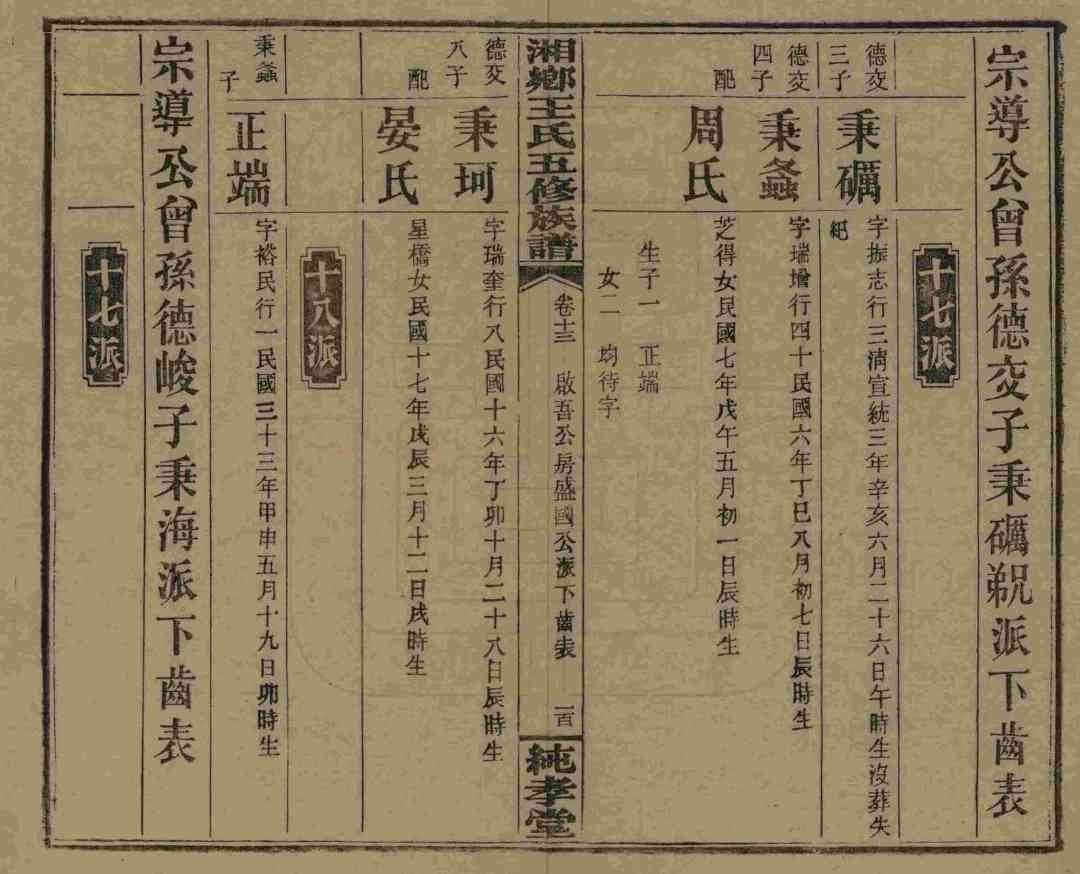 宗導公曾孫德交子秉礪派下齒表
十七派
德交三子
秉礪
字振志行三清宣統三年辛亥六月二十六日午時生沒葬失
紀
德交四子
秉螽
字瑞增行四十民國六年丁巳八月初七日辰時生
配
周氏
芝得女民國七年戊午五月初一日辰時生
生子一 正端
女二 均待字
湘鄉王氏五修族譜
卷十三 啟吾公房盛國公派下齒表 一百
純孝堂
德交八子
秉珂
字瑞奎行八民國十六年丁卯十月二十八日辰時生
配
晏氏
星橋女民國十七年戊辰三月十二日戌時生
十八派
秉螽子
正端
字裕民行一民國三十三年甲申五月十九日卯時生
宗導公曾孫德峻子秉海派下齒表
十七派